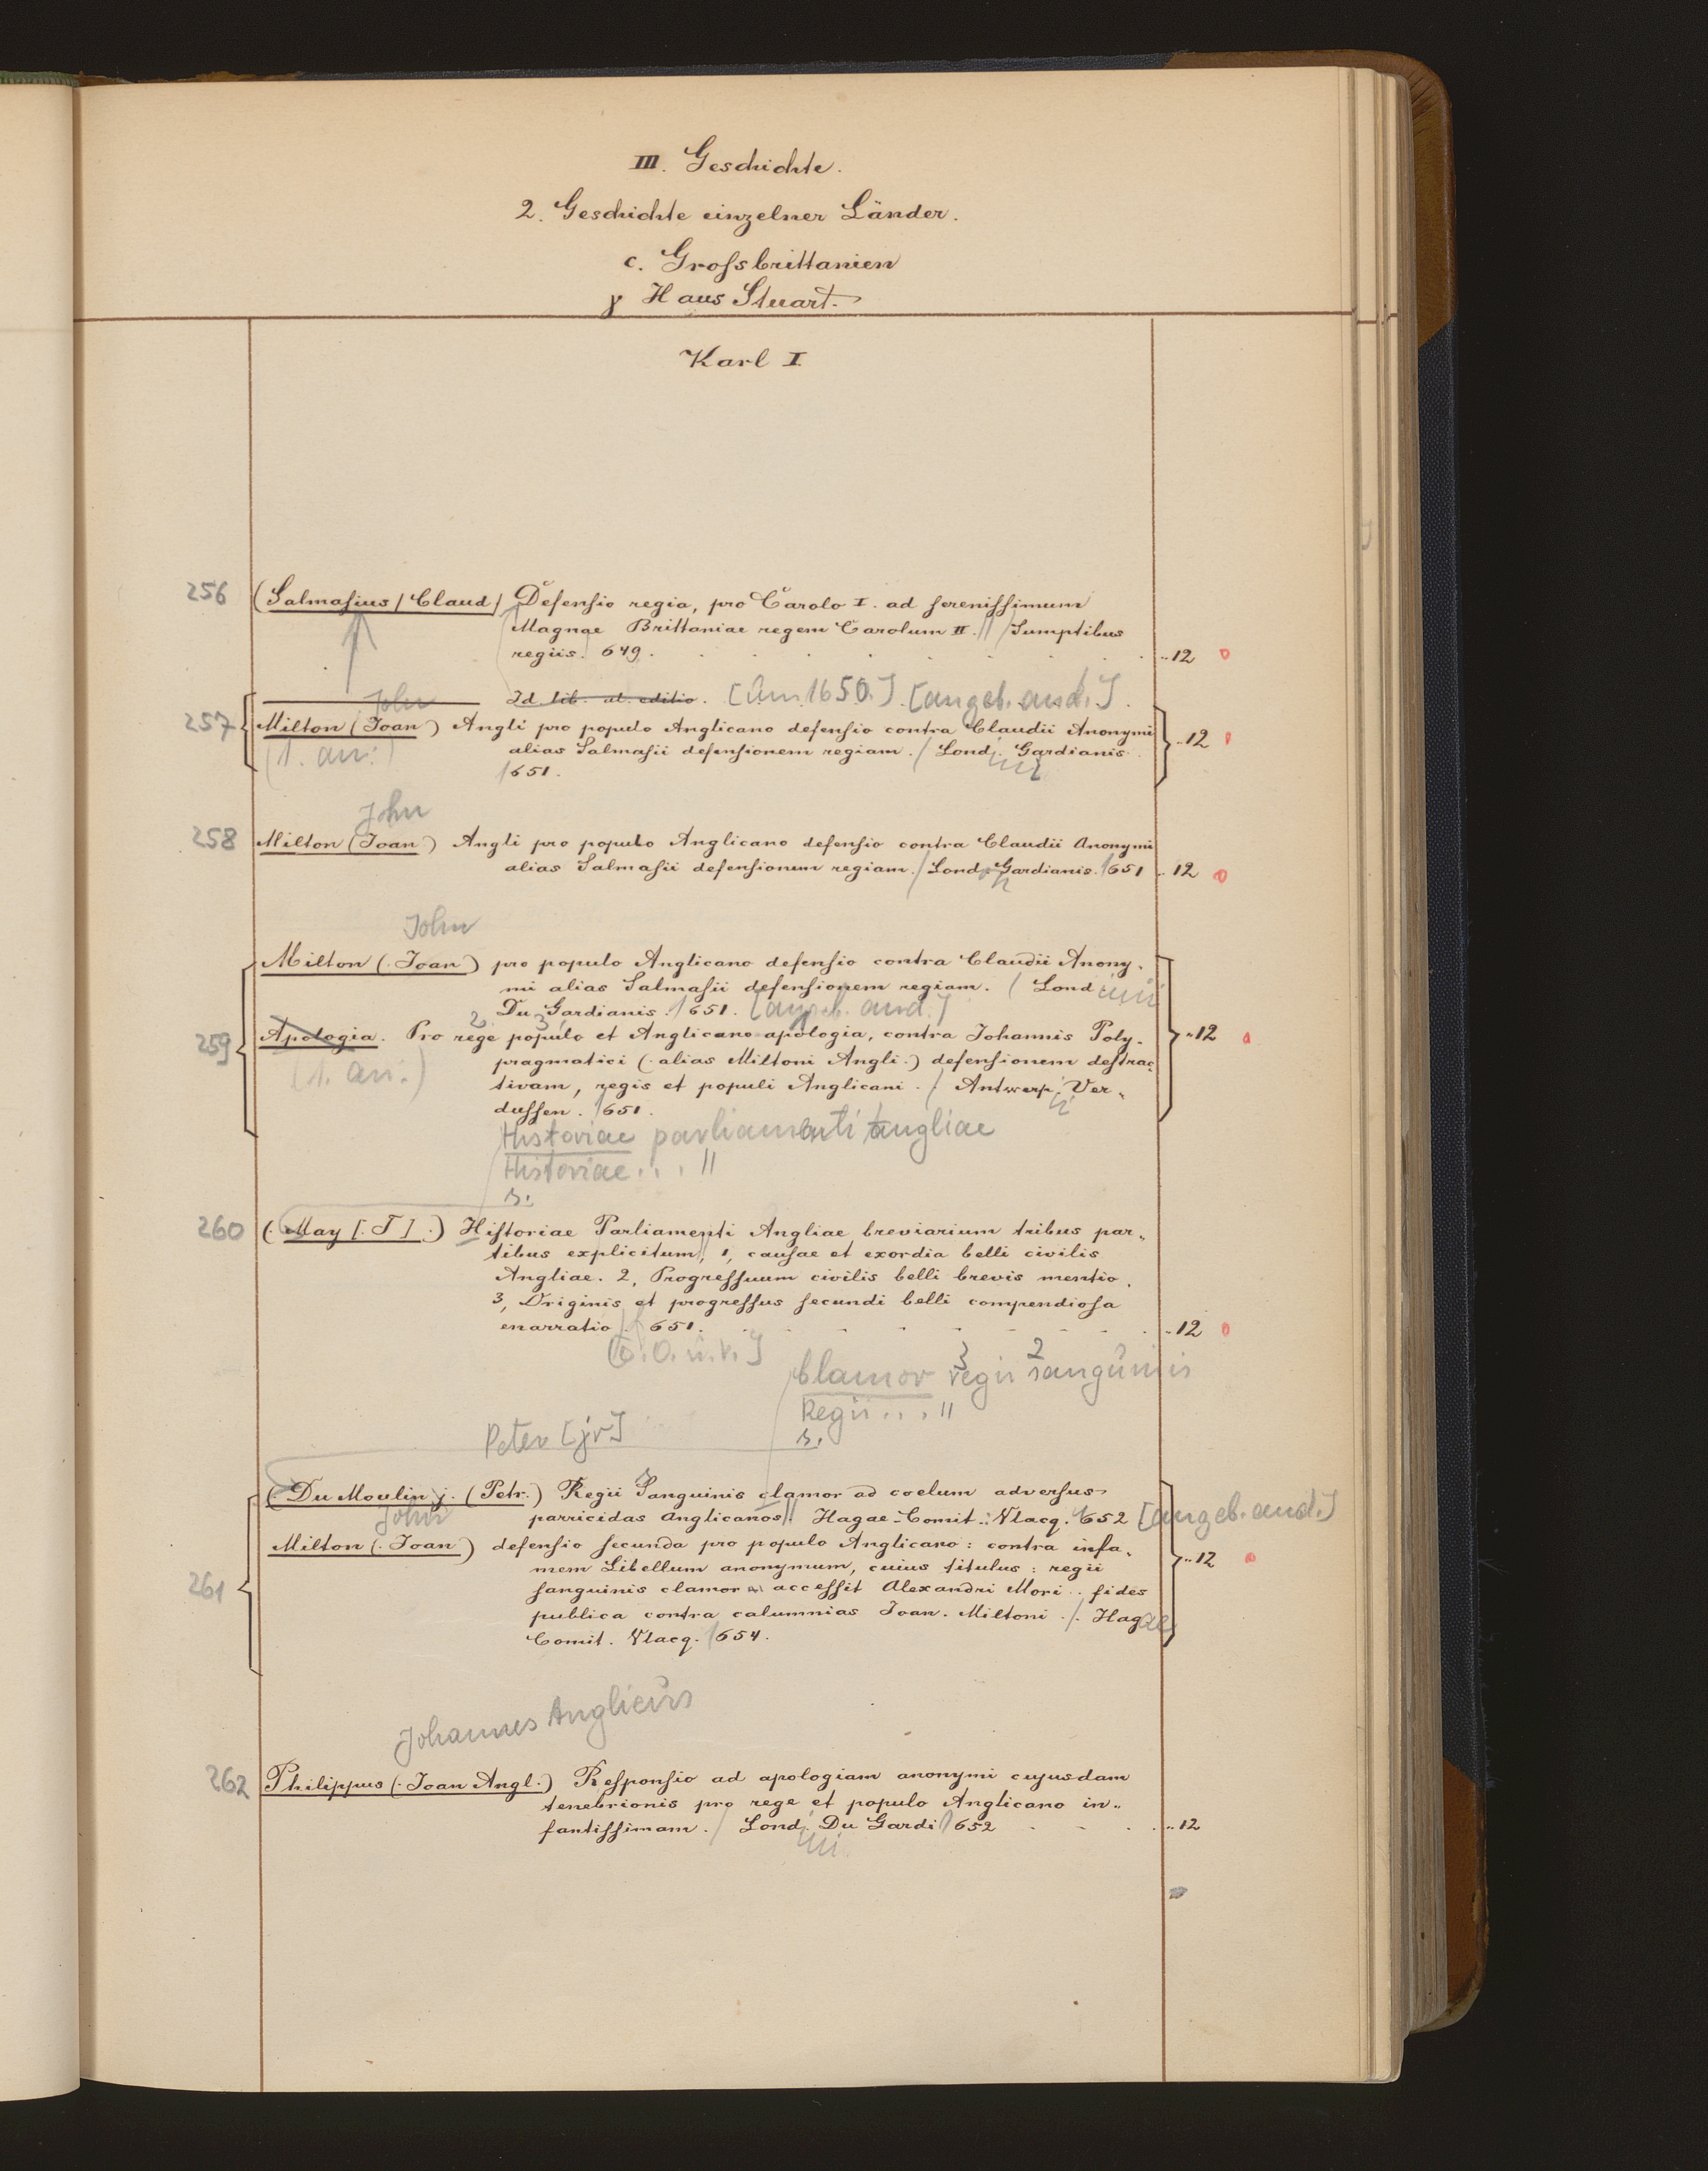 III. Geschichte.
2. Geschichte einzelner Länder.
c. Grossbrittanien
γ Haus Stuart.
Karl I.
256 (Salmasius / Claud / Defensio regia, pro Carolo I. ad serenissimum
Magnae Brittaniae regem Carolum II. // Sumptibus
regiis. 649. .. 12 0
Id. lib. al. editio. [Um 1650.] [angeb. and.]
John
257 Milton (Joan) Angli pro populo Anglicano defensio contra Claudii Anonymi
(1. an:) alias Salmasii defensionem regiam. / Lond. Gardianis. .. 12
1651.
John
258 Milton (Joan) Angli pro populo Anglicano defensio contra Claudii Anonymi
alias Salmasii defensionem regiam. / Lond. Gardianis. 1651 .. 12 0
John
Milton (Joan) pro populo Anglicano defensio contra Claudii Anony-
mi alias Salmasii defensionem regiam. / Lond
Du Gardianis. 1651. [angeb. and.]
259 Apologia. Pro rege populo et Anglicano apologia, contra Johannis Poly- .. 12
(1. an.) pragmatici (alias Miltoni Angli.) defensionem destruc-
tivam, regis et populi Anglicani. / Antwerp. Ver-
dussen. 1651.
Historiae parliamenti Angliae
Historiae ... //
s.
260 (May [T].) Historiae Parliamenti Angliae breviarium tribus par-
tibus explicitum, 1, causae et exordia belli civilis
Angliae. 2, Progressuum civilis belli brevis mentio.
3, Originis et progressus secundi belli compendiosa
enarratio. 1651. .. 12 0
[O. O. u. V.]
Clamor 3 regii 2 sanguinis
Regii ... //
s.
Peter [jr]
(Du Moulin j. (Petr.) Regii Sanguinis clamor ad coelum adversus
parricidas Anglicanos // Hagae-Comit.: Vlacq. 1652 [angeb. and.]
John
Milton (Joan) defensio secunda pro populo Anglicano: contra infa- .. 12
mem Libellum anonymum, cuius titulus: regii
261 sanguinis clamor accessit Alexandri Mori .. fides
publica contra calumnias Joan. Miltoni. /. Hagae
Comit. Vlacq. 1654.
Johannes Anglicus
262 Philippus (Joan Angl.) Responsio ad apologiam anonymi cujusdam
tenebrionis pro rege et populo Anglicano in-
fantissimam. / Lond. Du Gardi 1652 .. 12